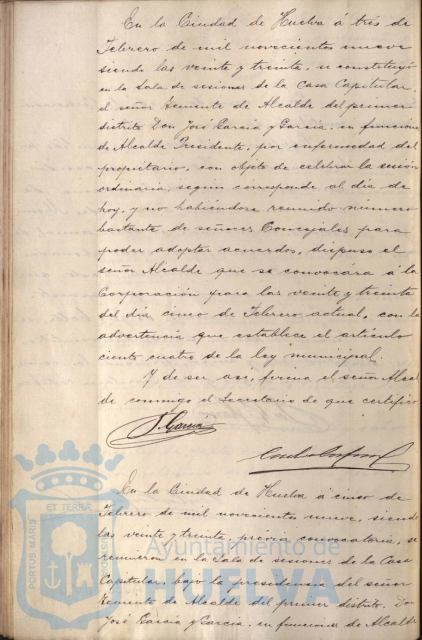 En la Ciudad de Huelva á tres de
Febrero de mil novecientos nueve
siendo las veinte y treinta, se constituyó
en la Sala de sesiones de la Casa Capitular,
el señor Teniente de Alcalde del primer
distrito Don José García y García, en funciones
de Alcalde Presidente, por enfermedad del
propietario, con objeto de celebrar la sesión
ordinaria, según corresponde al día de
hoy, y no habiéndose reunido número
bastante de señores Concejales para
poder adoptar acuerdos, dispuso el
señor Alcalde que se convocara á la
Corporación para las veinte y treinta
del día cinco de Febrero actual, con la
advertencia que establece el artículo
ciento cuatro de la ley municipal.
Y de ser así, firma el señor Alcal
de conmigo el Secretario de que certifico
J. García
En la Ciudad de Huelva á cinco de
Febrero de mil novecientos nueve, siendo
las veinte y treinta, previa convocatoria, se
reunieron en la Sala de sesiones de la Casa
Capitular, bajo la presidencia del señor
Teniente de Alcalde del primer distrito, Don
José García y García, en funciones de Alcalde
PORTUS MARIS
ET TERRÆ
Ayuntamiento de
HUELVA